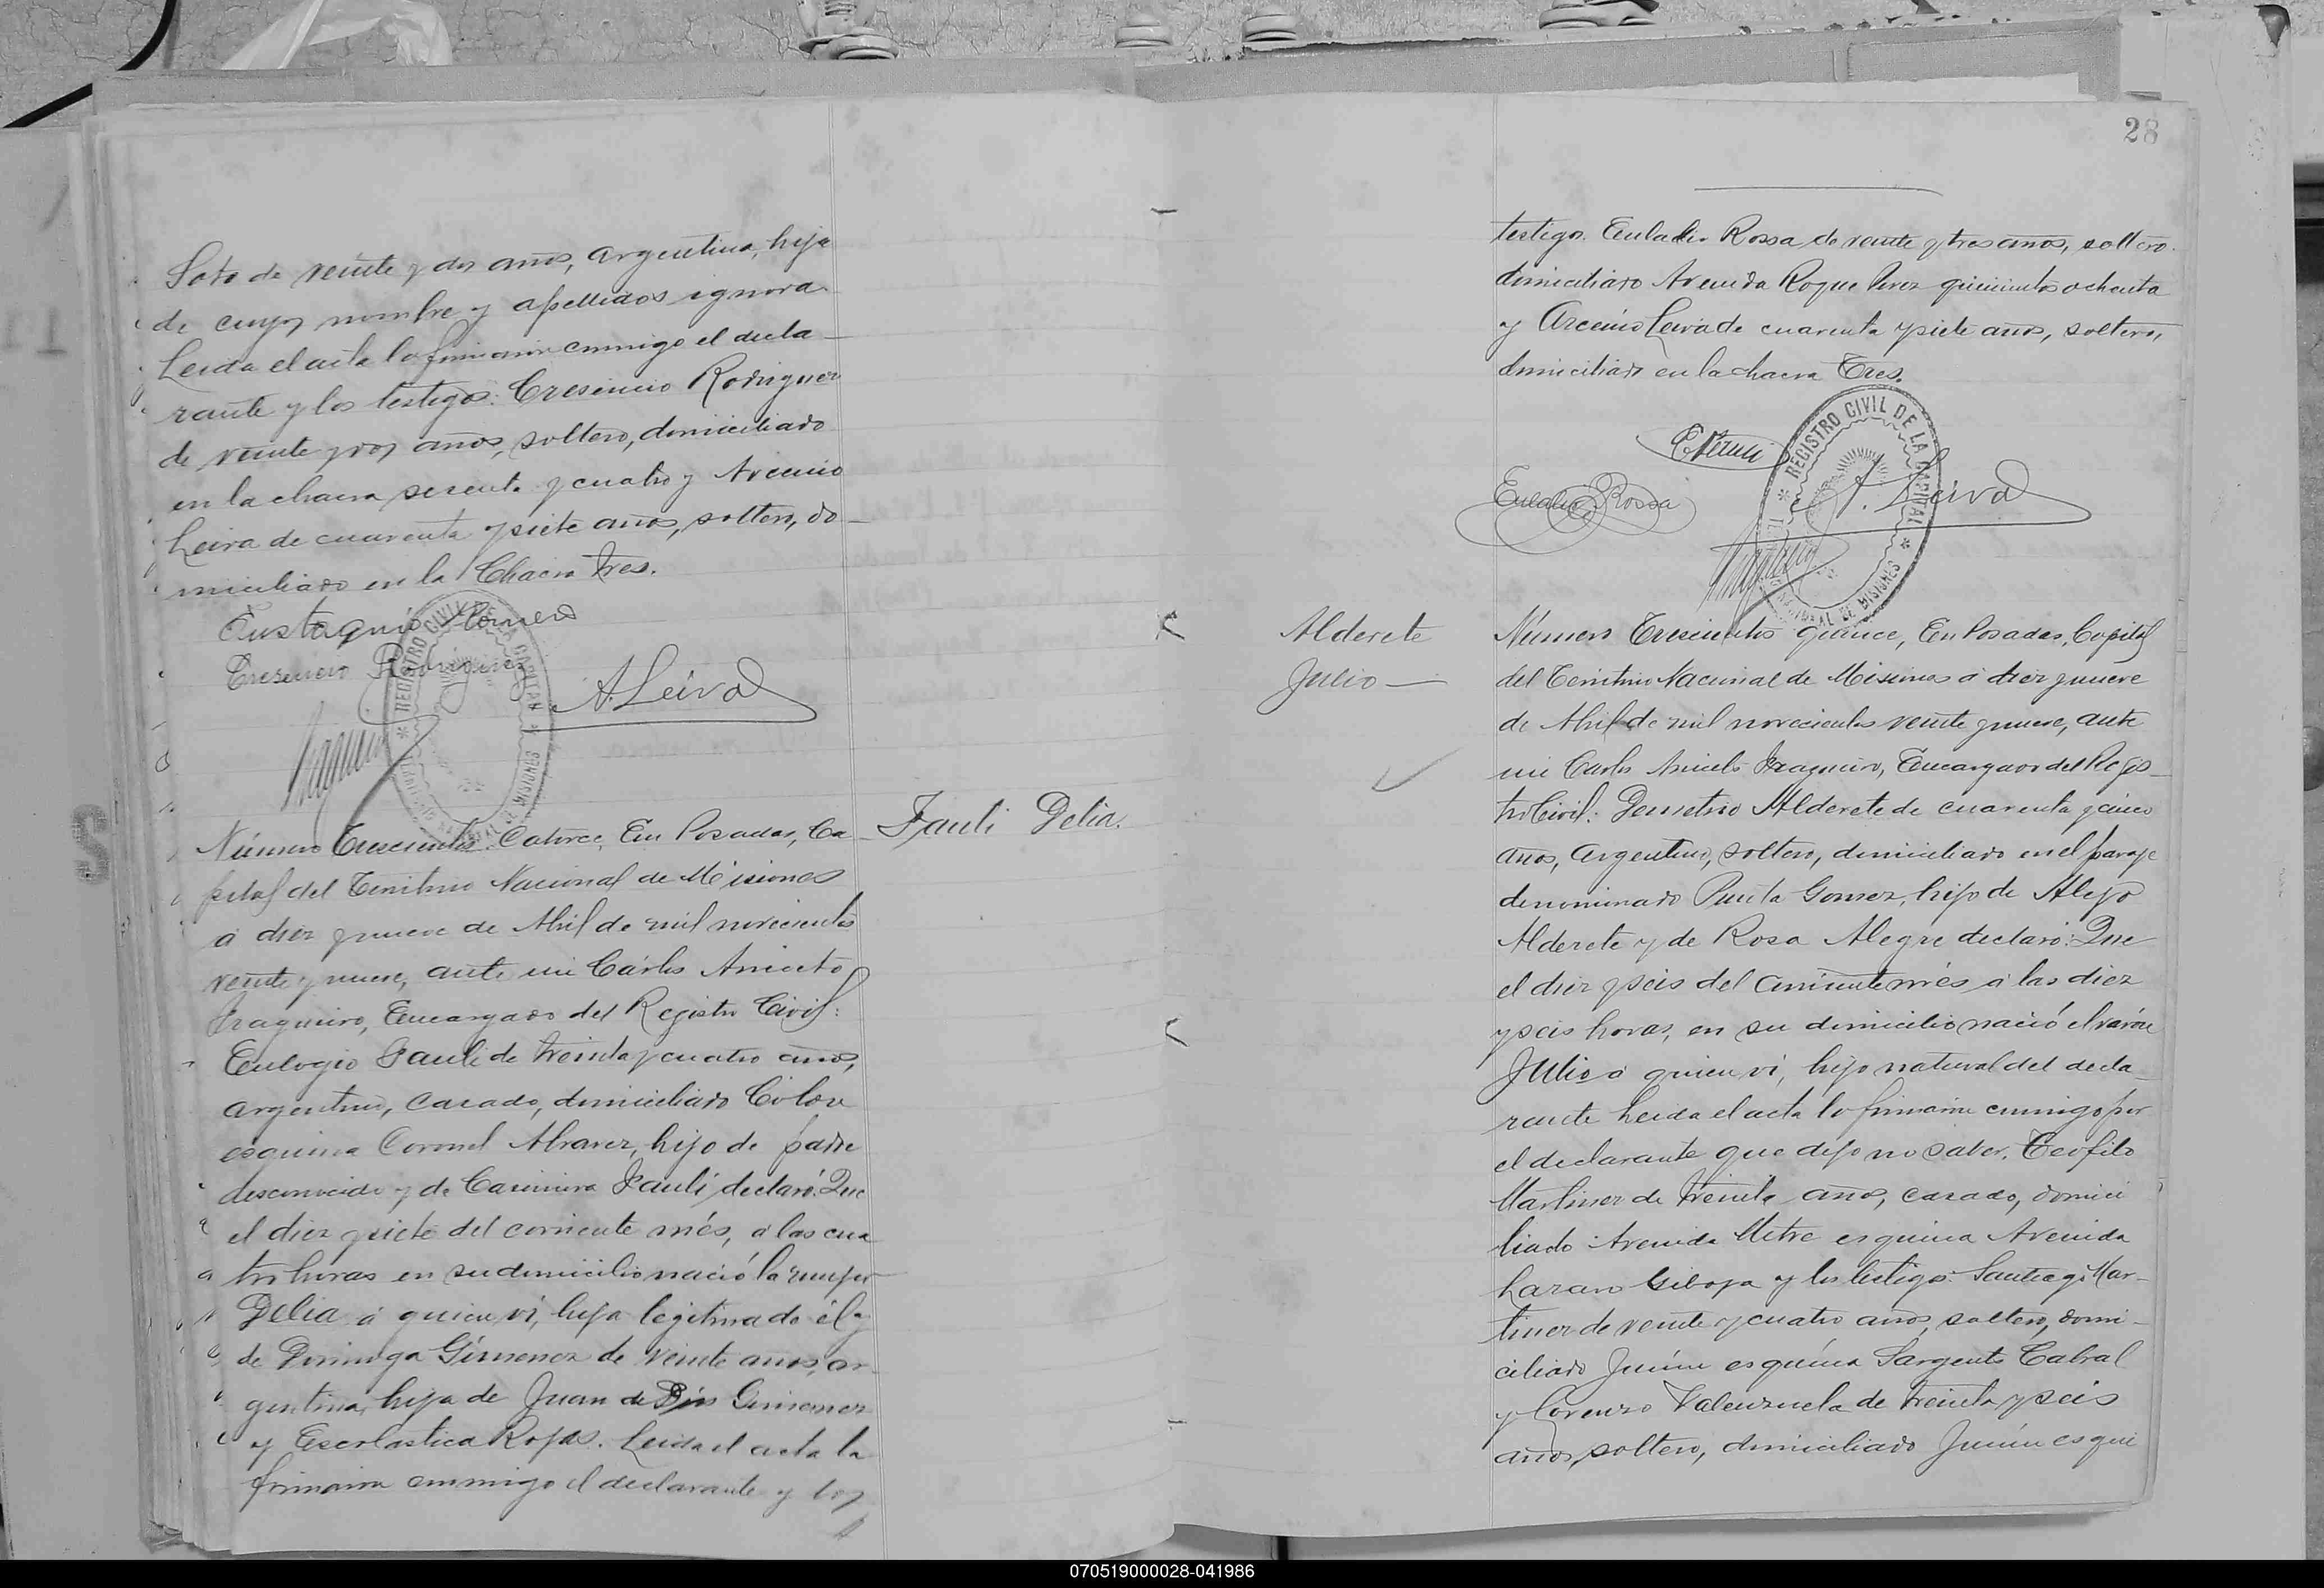 Soto de veinte y dos años, argentina, hija
de cuyos nombre y apellidos ignora.
Leida el acta la firmaron conmigo el decla-
rante y los testigos: Cresencio Rodriguez
de veinte y dos años, soltero, domiciliado
en la chacra sesenta y cuatro y Arcenio
Leiva de cuarenta y siete años, soltero, do-
miciliado en la Chacra Tres.
Eustaquio Romero
Cresencio Rodriguez
A. Leiva
REGISTRO CIVIL DE LA CAPITAL
MISIONES
Número Trescientos Catorce, En Posadas, Ca-
pital del Territorio Nacional de Misiones
á diez y nueve de Abril de mil novecientos
veinte y nueve, ante mi Cárlos Aniceto
Iraqueiro, Encargado del Registro Civil:
Eulogio Fauli de treinta y cuatro años,
argentino, casado, domiciliado Colon
esquina Coronel Alvarez, hijo de padre
desconocido y de Casimira Fauli, declaró: Que
el diez y siete del corriente més, á las cua-
tro horas en su domicilio nació la mujer
Delia á quien vi, hija legitima de él y
de Dominga Gimenez de veinte años, ar-
gentina, hija de Juan de Dios Gimenez
y Escolastica Rojas. Leida el acta la
firmaron conmigo el declarante y los
Fauli Delia.
28
testigos. Eulalio Rossa de veinte y tres años, soltero.
domiciliado Avenida Roque Perez quinientos ochenta
y Arcenio Leiva de cuarenta y siete años, soltero,
domiciliado en la chacra Tres.
Eulalio Rossa
A. Leiva
REGISTRO CIVIL DE LA CAPITAL
MISIONES
Alderete
Julio
Número Trescientos quince, En Posadas, Capital
del Territorio Nacional de Misiones á diez y nueve
de Abril de mil novecientos veinte y nueve, ante
mi Carlos Aniceto Iraqueiro, Encargado del Regis-
tro Civil: Demetrio Alderete de cuarenta y cinco
años, argentino, soltero, domiciliado en el paraje
denominado Punta Gomez, hijo de Alejo
Alderete y de Rosa Alegre declaró: Que
el diez y seis del corriente més á las diez
y seis horas, en su domicilio nació el varón
Julio á quien vi, hijo natural del decla-
rante Leida el acta la firmaron conmigo por
el declarante que dijo no saber, Teofilo
Martinez de treinta años, casado, domici
liado Avenida Mitre esquina Avenida
Lazaro Gibaja y los testigos: Santiago Mar-
tinez de veinte y cuatro años, soltero, domi-
ciliado Junin esquina Sargento Cabral
y Lorenzo Valenzuela de treinta y seis
años, soltero, domiciliado Junin esqui
070519000028-041986